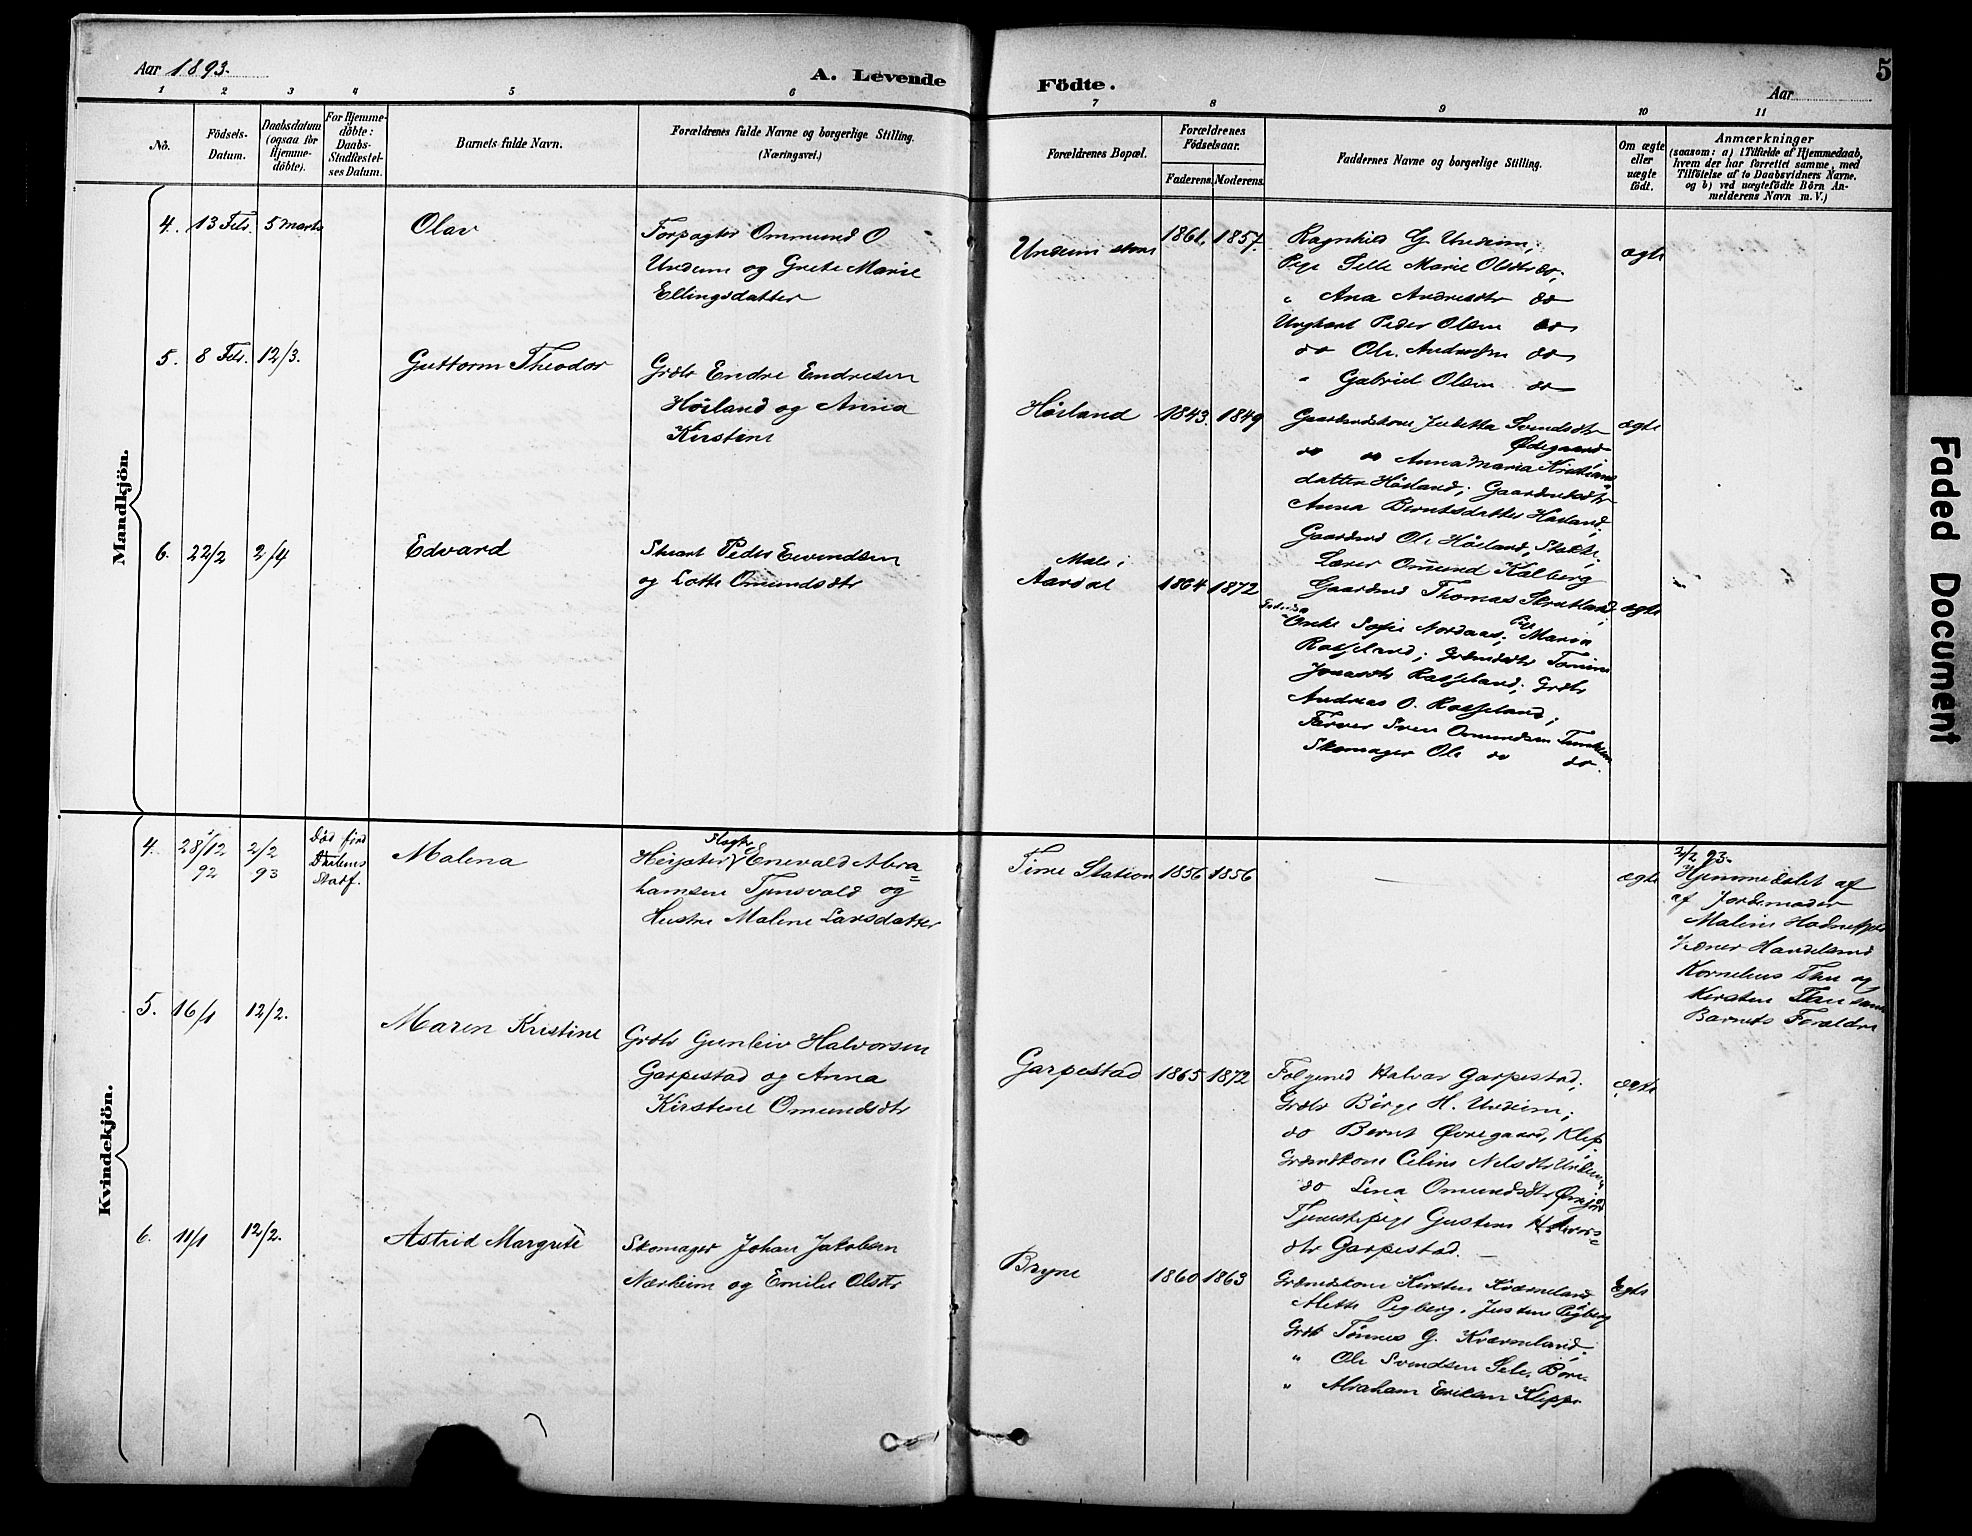 Aar 1893.
A. Levende Födte.
Aar
5
1 2 3 4 5 6 7 8 9 10 11
No.
Födsels-
Datum.
Daabsdatum
(ogsaa for
Hjemme-
döbte).
For Hjemme-
döbte:
Daabs-
Stadfæstel-
ses Datum.
Barnets fulde Navn.
Forældrenes fulde Navne og borgerlige Stilling.
(Næringsvei.)
Forældrenes Bopæl.
Forældrenes
Födselsaar.
Faderens. Moderens.
Faddernes Navne og borgerlige Stilling.
Om ægte
eller
uægte
födt.
Anmærkninger
(saasom: a) i Tilfælde af Hjemmedaab,
hvem der har forrettet samme, med
Tilföielse af to Daabsvidners Navne.
og b) ved uægtefödte Börn An-
melderens Navn m. V.)
Mandkjön.
4. 13 Feb. 5 Marts Olav
Forpagter Ommund O
Undeim og Grete Marie
Ellingsdatter
Undeim store 1861, 1857.
Ragnhild G. Undeim;
Pige Sille Marie Olsdtr do;
" Ana Andresdtr do
Ungkarl Peder Olsen do
do Ole Andresen do
" Gabriel Olsen do
ægte
5. 8 Feb. 12/3. Guttorm Theodor
Grdbr Endre Endresen
Høiland og Anna
Kirstine
Høiland 1843. 1849
Gaardmdskone Jubetta Svendsdtr
Ødegaard
do do Anna Maria Kristians-
datter Høiland; Gaardmdsdtr
Anna Berntsdatter Høiland;
Gaardmd Ole Høiland,
Lærer Omund Kalberg
ægte
6. 22/2 2/4 Edvard
Peder Eivindsen
og Lotte Omundsdtr
Aardal 1864 1872
Gaardmd Thomas
Sofie Aardaas; Pige Maria
Rosseland; Grdmdsdtr Tomine
Jonasdtr Rosseland; Grdbr
Andreas O. Rosseland;
Farver Sven Omundsen
Skomager Ole do do.
ægte
Kvindekjön.
4. 28/12 92 2/2 93
Malena
Slagter
Enevald Abra=
hamsen Tjensvold og
Hustru Malene Larsdatter
Time Station 1856 1856
—
ægte
2/2 93.
Hjemmedøbt af
af Jordemoder
Maline
Handelsmd
Kornelius Thu og
Kirsten Thu samt
Barnets Forældre
5. 16/1 12/2. Maren Kristine
Grdbr Gunleiv Halvorsen
Garpestad og Anna
Kirstine Omundsdtr
Garpestad 1865 1872
Folgemd Halvor Garpestad;
Grdbr Börge H. Undeim;
do Bernt Øvregaard, Klep
Grdmdkone Celine Nelsdtr Undeim
do Lina Omundsdtr
Tjenestepige Gustine Halvors=
dtr Garpestad. —
ægte
6. 11/1 12/2. Astrid Margrete
Skomager Johan Jakobsen
Nærheim og Emilie Olsdtr
Bryne 1860 1863
Grdmdskone Kirsten Kværneland
Mette Pigberg. Justine Pigberg
Grdbr Tönnes G. Kværneland;
" Ole Svendsen Sele, Bore
" Abraham Eriksen Klepp
ægte
Faded Document